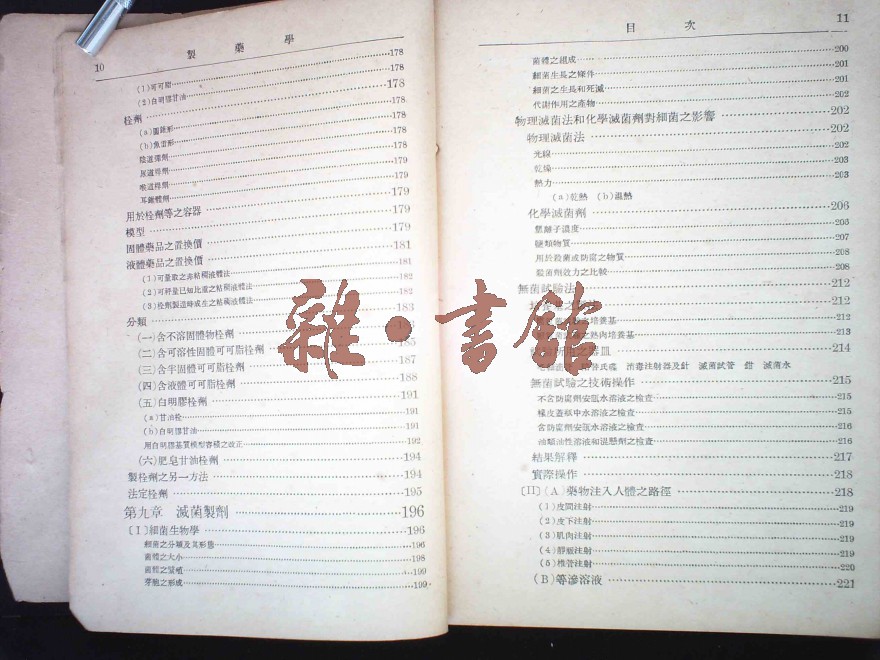 10 製藥學
(1)可可脂 178
(2)白明膠甘油 178
栓劑 178
(a)圓錐形 178
(b)魚雷形 178
陰道彈劑 178
尿道栓劑 179
喉道栓劑 179
耳錐體劑 179
用於栓劑等之容器 179
模型 179
固體藥品之置換價 179
液體藥品之置換價 181
(1)可量取之非粘稠液體法 181
(2)可秤量已知比重之粘稠液體法 182
(3)栓劑製造時成生之粘稠液體法 182
分類 183
(一)含不溶固體物栓劑
(二)含可溶性固體可可脂栓劑 185
(三)含半固體可可脂栓劑 187
(四)含液體可可脂栓劑 188
(五)白明膠栓劑 191
(a)甘油栓 191
(b)白明膠甘油 191
用白明膠基質模型容積之改正 192
(六)肥皂甘油栓劑 194
製栓劑之另一方法 194
法定栓劑 195
第九章 滅菌製劑 196
〔I〕細菌生物學 196
細菌之分類及其形態 196
菌體之大小 198
菌體之繁殖 199
芽胞之形成 199
目次 11
菌體之組成 200
細菌生長之條件 201
細菌之生長和死滅 201
代謝作用之產物 202
物理滅菌法和化學滅菌劑對細菌之影響 202
物理滅菌法 202
光線 202
乾燥 203
熱力 203
(a)乾熱 (b)濕熱
化學滅菌劑 206
氫離子濃度 205
鹽類物質 207
用於殺菌或防腐之物質 208
殺菌劑效力之比較 208
無菌試驗法 212
212
之培養基 212
之熱肉培養基 213
器皿 214
消毒注射器及針 滅菌試管 鉗 滅菌水
無菌試驗之技術操作 215
不含防腐劑安瓿水溶液之檢查 215
橡皮蓋瓶中水溶液之檢查 215
含防腐劑安瓿水溶液之檢查 216
油類油性溶液和混懸劑之檢查 216
結果解釋 217
實際操作 218
〔II〕(A)藥物注入人體之路徑 218
(1)皮間注射 219
(2)皮下注射 219
(3)肌肉注射 219
(4)靜脈注射 219
(5)椎管注射 220
(B)等滲溶液 221
雜·書館